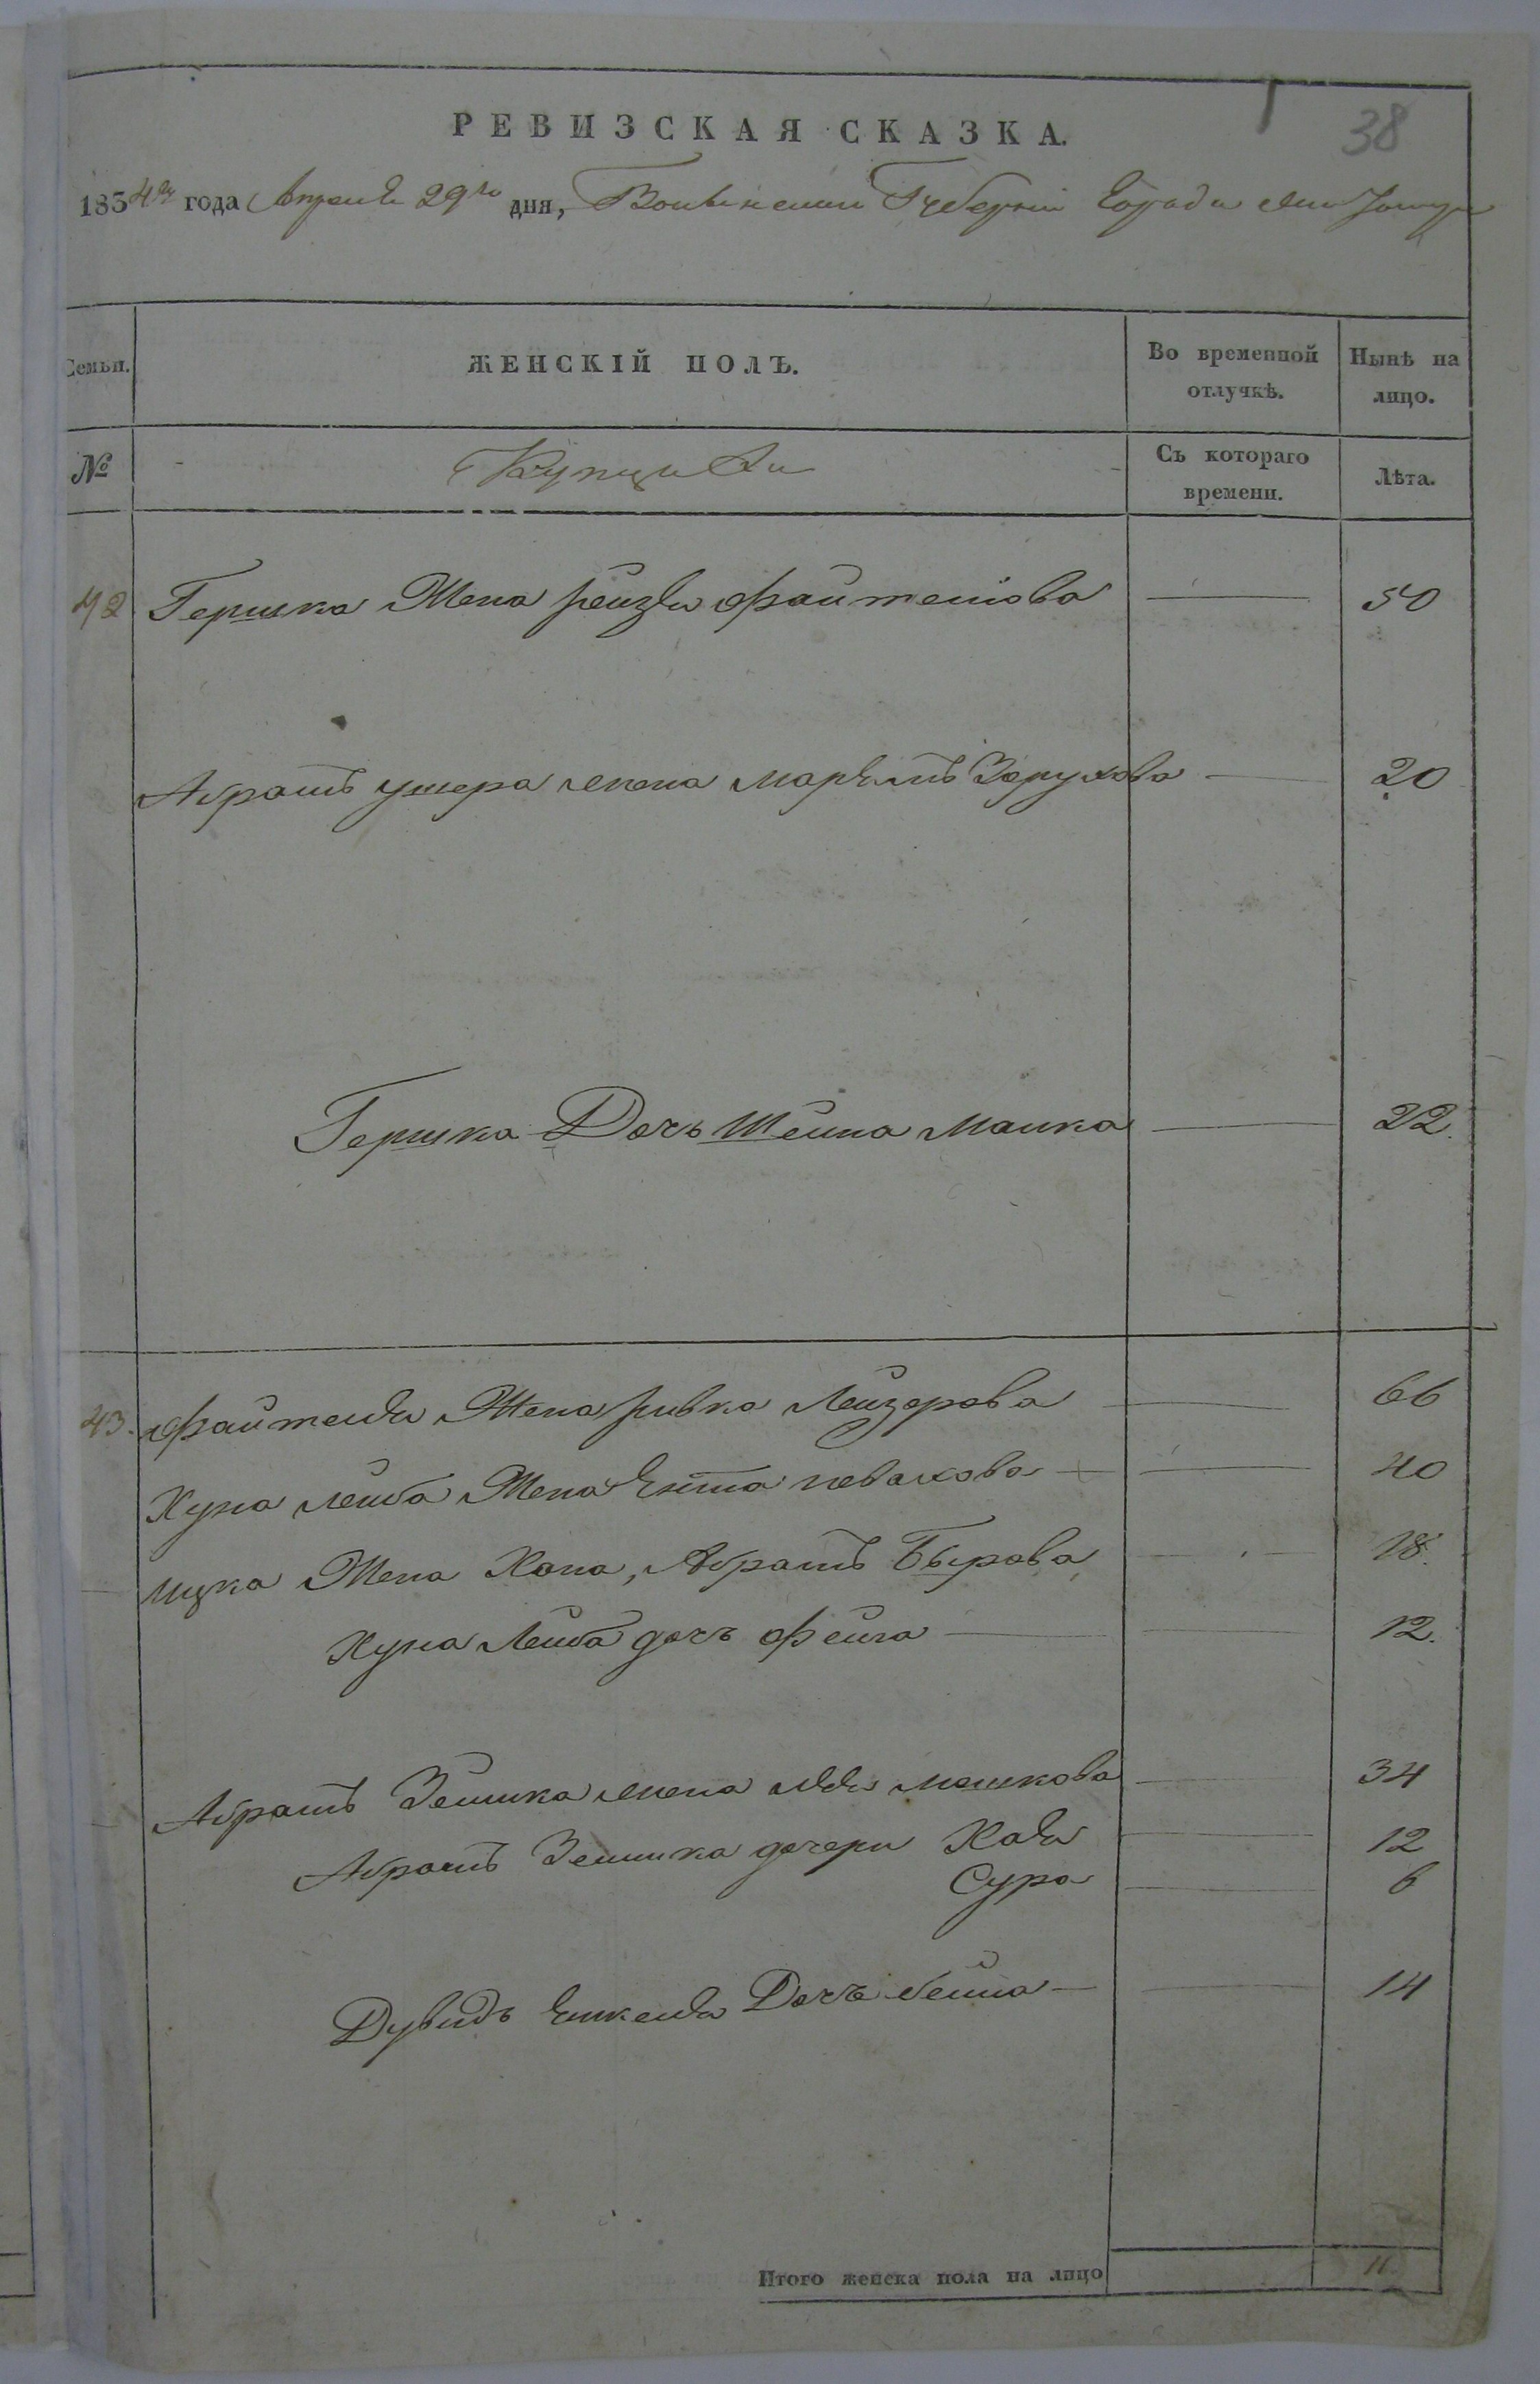 38
РЕВИЗСКАЯ СКАЗКА.
1854го года Апреля 29го дня, Волынской Губерніи Города
Семьи. ЖЕНСКІЙ ПОЛЪ. Во временной отлучкѣ. Нынѣ на лицо.
№ Купцы Съ котораго времени. Лѣта.
42 Гершка Жена рейзя файтелiова — 50
Абрамъ ушера жена Марьямъ — 20
Гершка Дочь Шейна Малка — 22.
43. файтеля Жена ривка Лейзерова — 66
Хуна лейба Жена Ента — 40
ицка Жена Хана, Абрамъ Бѣрова — 18.
Хуна Лейба дочь фейга — 12.
Абрамъ Зелика жена мошкова — 34
Абрамъ Зелика дочери Хая — 12
Сура — 6
Дувидъ Дочь бейла — 14
Итого женска пола на лицо 11.